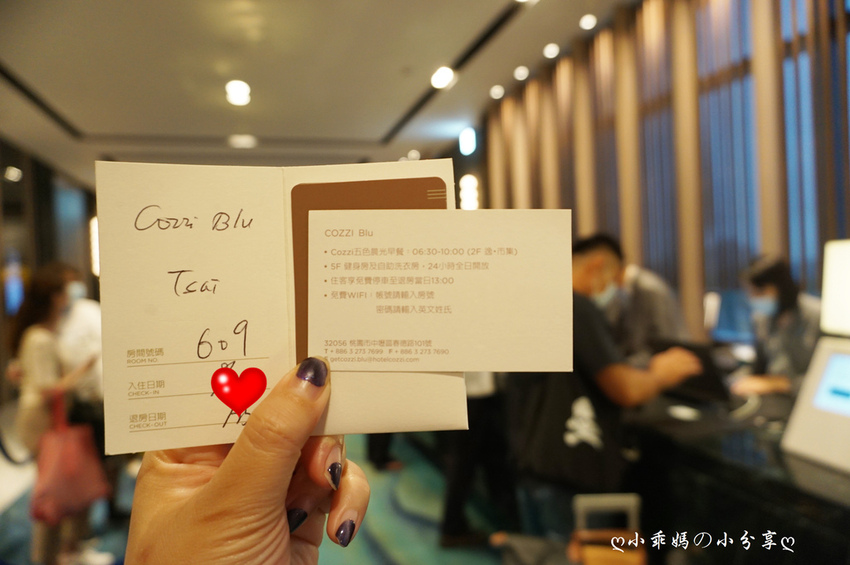 Cozzi Blu
Tsai
房間號碼
ROOM NO.
609
入住日期
CHECK-IN
退房日期
CHECK-OUT
COZZI Blu
• Cozzi五色晨光早餐:06:30-10:00 (2F 逸•市集)
• 5F 健身房及自助洗衣房,24小時全日開放
• 住客享免費停車至退房當日13:00
• 免費WIFI,帳號請輸入房號
密碼請輸入英文姓氏
32056 桃園市中壢區春德路101號
T • 886 3 273 7699 F • 886 3 273 7690
getcozzi.blu@hotelcozzi.com
ღ小乖媽の小分享ღ